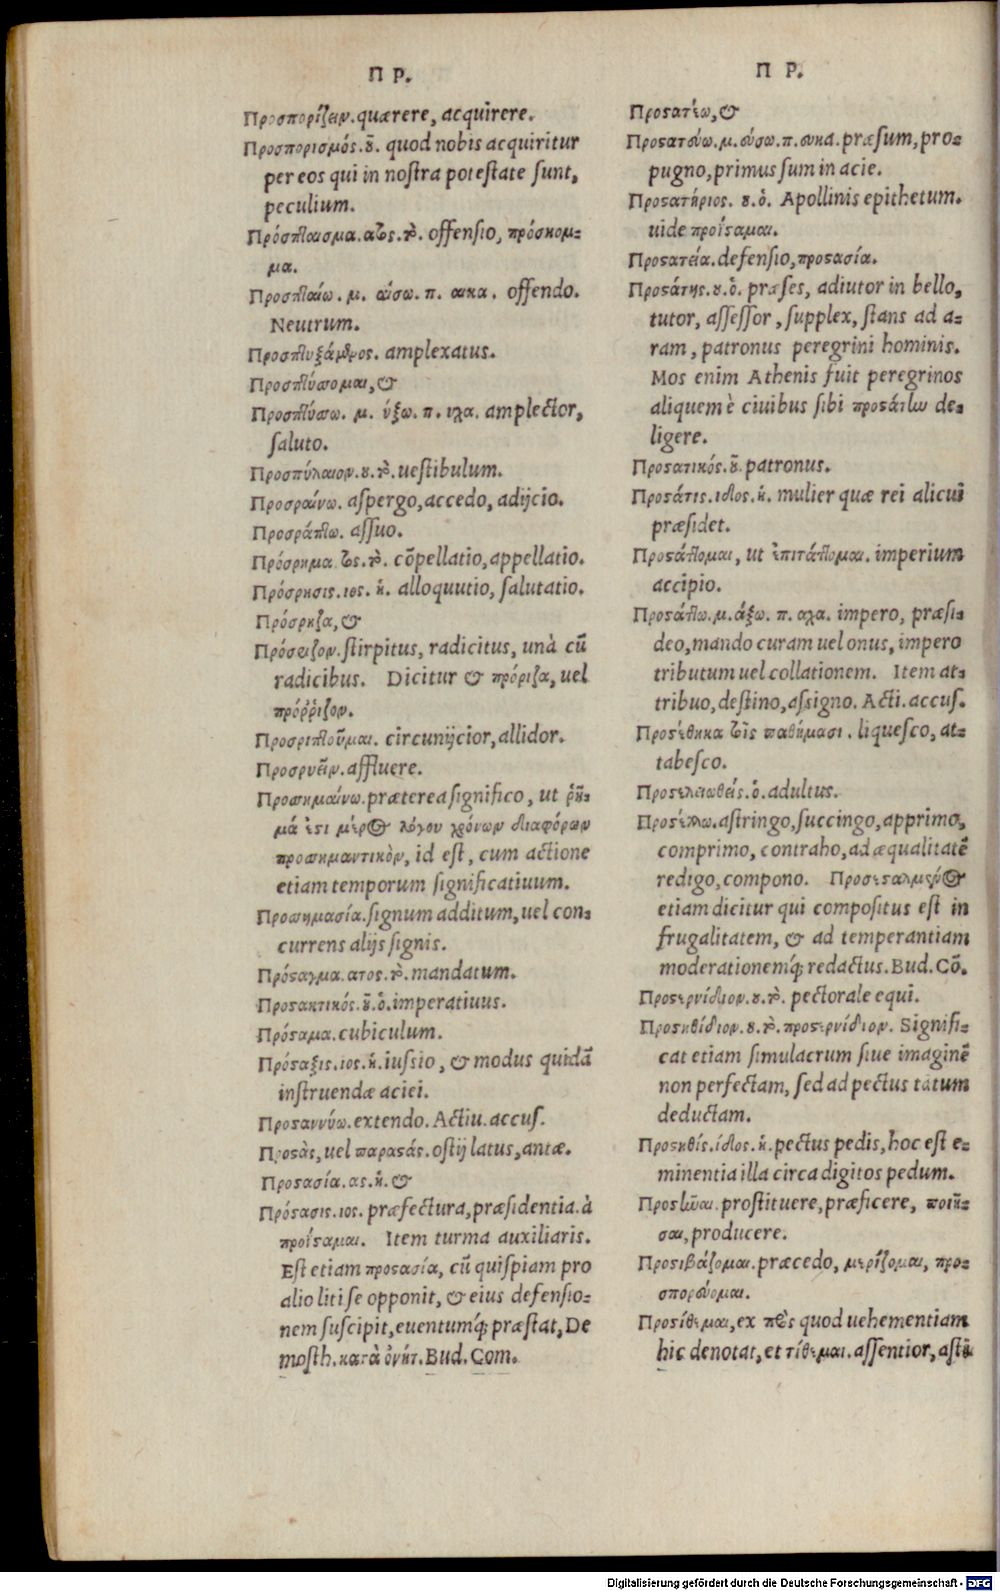 Π Ρ.
Προσπορίζειν. quærere, acquirere.
Προσπορισμός. ȣ̃. quod nobis acquiritur
per eos qui in nostra potestate sunt,
peculium.
Πρόσπταισμα. ατος. τὸ. offensio, πρόσκομ-
μα.
Προσπταίω. μ. αίσω. π. αικα. offendo.
Neutrum.
Προσπτυξάμενος. amplexatus.
Προσπτύσσομαι, &
Προσπτύσσω. μ. ύξω. π. υχα. amplector,
saluto.
Προσπύλαιον. ȣ. τὸ. uestibulum.
Προσραίνω. aspergo, accedo, adijcio.
Προσράπτω. assuo.
Πρόσρημα. τος. τὸ. cōpellatio, appellatio.
Πρόσρησις. ιος. ἡ. alloquutio, salutatio.
Πρόσρηζα, &
Πρόσριζον. stirpitus, radicitus, unà cū
radicibus. Dicitur & πρόριζα, uel
πρόῤῥιζον.
Προσριπτοῦμαι. circunijcior, allidor.
Προσρυεῖν. affluere.
Προσσημαίνω. præterea significo, ut ῥῆ-
μά ἐστι μέρος λόγου χρόνων διαφόρων
προσσημαντικὸν, id est, cum actione
etiam temporum significatiuum.
Προσσημασία. signum additum, uel con-
currens alijs signis.
Πρόσαγμα. ατος. τὸ. mandatum.
Προσακτικός. ȣ̃. ὁ. imperatiuus.
Πρόσαμα. cubiculum.
Πρόσαξις. ιος. ἡ. iussio, & modus quidā
instruendæ aciei.
Προσαννύω. extendo. Actiu. accus.
Προσὰς, uel παρασάς. ostij latus, antæ.
Προσασία. ας. ἡ. &
Πρόσασις. ιος. præfectura, præsidentia. à
προΐσαμαι. Item turma auxiliaris.
Est etiam προσασία, cū quispiam pro
alio liti se opponit, & eius defensio-
nem suscipit, euentumq́; præstat, De
mosth. κατὰ ὀνήτ. Bud. Com.
Π Ρ.
Προσατέω, &
Προσατεύω. μ. εύσω. π. ευκα. præsum, pro-
pugno, primus sum in acie.
Προσατήριος. ȣ. ὁ. Apollinis epithetum.
uide προΐσαμαι.
Προσατεία. defensio, προσασία.
Προσάτης. ȣ. ὁ. præses, adiutor in bello,
tutor, assessor, supplex, stans ad a-
ram, patronus peregrini hominis.
Mos enim Athenis fuit peregrinos
aliquem è ciuibus sibi προσάτην de-
ligere.
Προσατικός. ȣ̃. patronus.
Προσάτις. ιδος. ἡ. mulier quæ rei alicui
præsidet.
Προσάττομαι, ut ἐπιτάττομαι. imperium
accipio.
Προσάττω. μ. άξω. π. αχα. impero, præsi-
deo, mando curam uel onus, impero
tributum uel collationem. Item at-
tribuo, destino, assigno. Acti. accus.
Προσέθηκα τοῖς παθήμασι. liquesco, at-
tabesco.
Προσελειωθείς. ὁ. adultus.
Προσέλλω. astringo, succingo, apprimo,
comprimo, contraho, ad æqualitatē
redigo, compono. Προσεσαλμένος
etiam dicitur qui compositus est in
frugalitatem, & ad temperantiam
moderationemq́; redactus. Bud. Cō.
Προσερνίδιον. ȣ. τὸ. pectorale equi.
Προσηθίδιον. ȣ. τὸ. προσερνίδιον. Signifi-
cat etiam simulacrum siue imaginē
non perfectam, sed ad pectus tātum
deductam.
Προσηθίς. ίδος. ἡ. pectus pedis, hoc est e-
minentia illa circa digitos pedum.
Προσῆναι. prostituere, præficere, ποιῆ-
σαι, producere.
Προσιβάζομαι. præcedo, μερίζομαι, προ-
σπορεύομαι.
Προσίθεμαι, ex πρὸς quod uehementiam
hic denotat, et τίθεμαι. assentior, astī
Digitalisierung gefördert durch die Deutsche Forschungsgemeinschaft - DFG